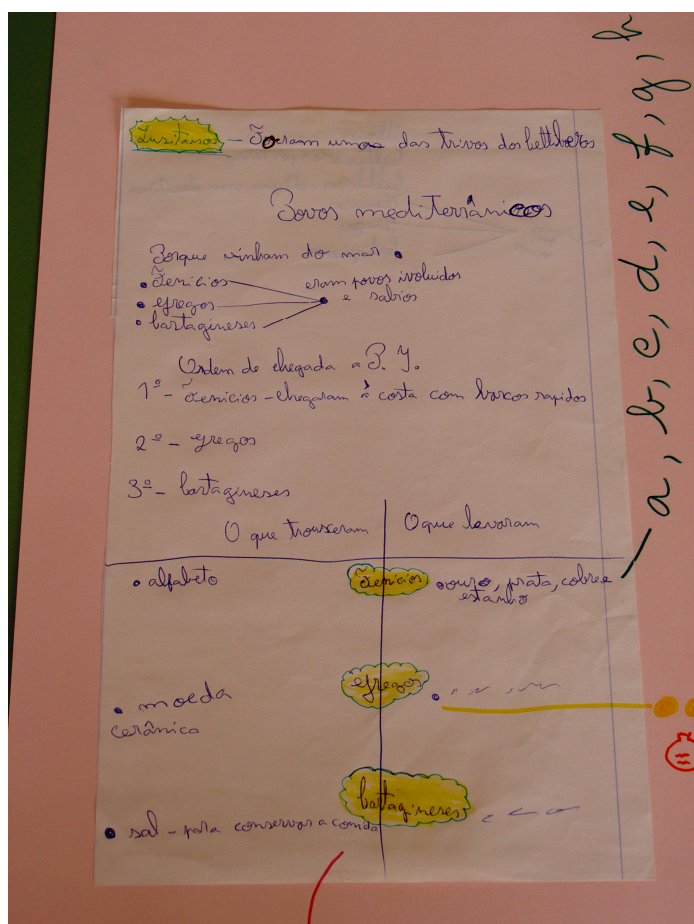 Lusitanos - Foram umas das trivos dos Celtiberos
Povos mediterrânicos
Porque vinham do mar.
• Fenicios
• Gregos
• Cartagineses
eram povos ivoluidos
e sabios
Ordem de chegada a P. I.
1º - Fenicios - chegaram à costa com barcos rapidos
2º - Gregos
3º - Cartagineses
O que trouseram
O que levaram
• alfabeto
Fenicios
• ouro, prata, cobre e
estanho
• moeda
cerâmica
Gregos
•
Cartagineses
• sal - para conservar a comida
a, b, c, d, e, f, g, h